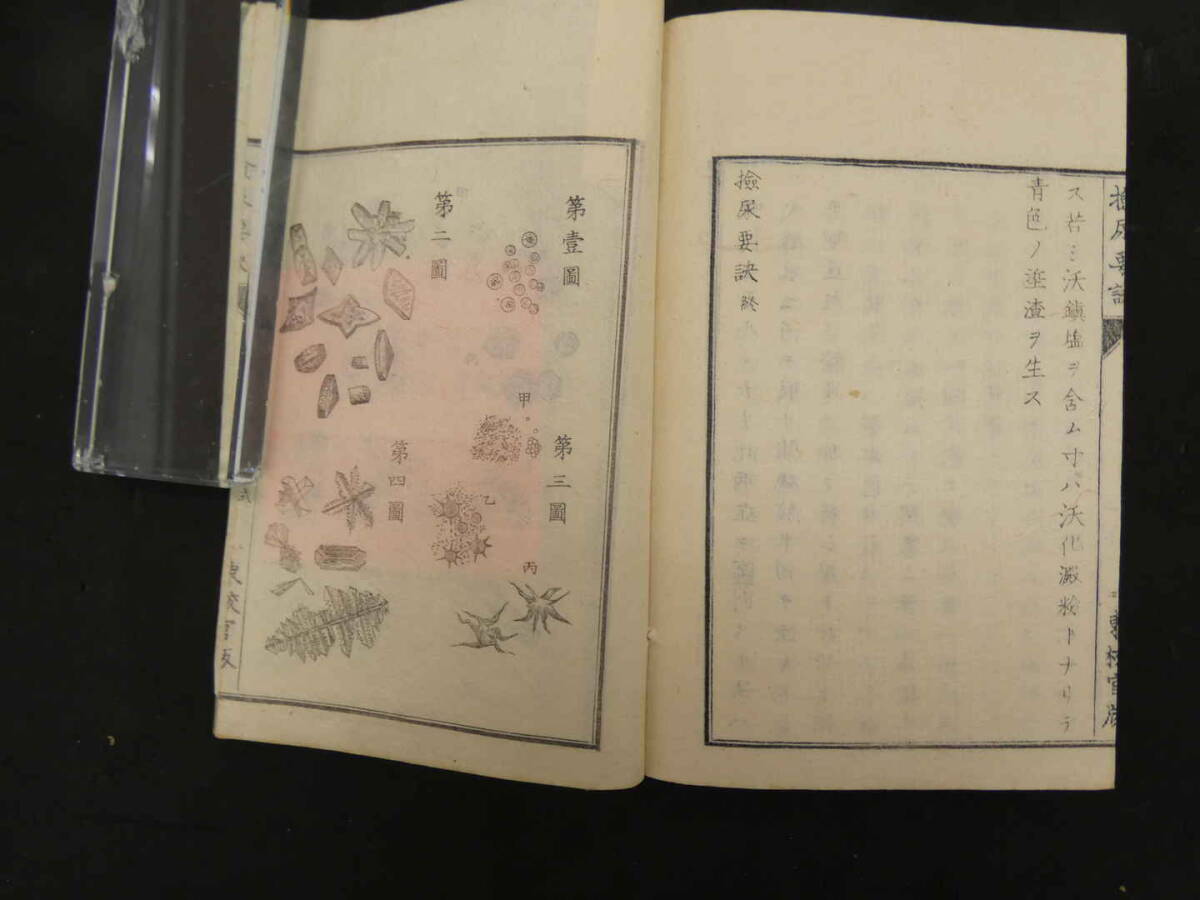 撿尿要訣
東校官版
ス若シ沃鎮塩ヲ含ム寸ハ沃化澱粉トナリテ
青色ノ塗渣ヲ生ス
撿尿要訣終
第壹圖
第二圖
第三圖
甲
乙
丙
第四圖
東校官版